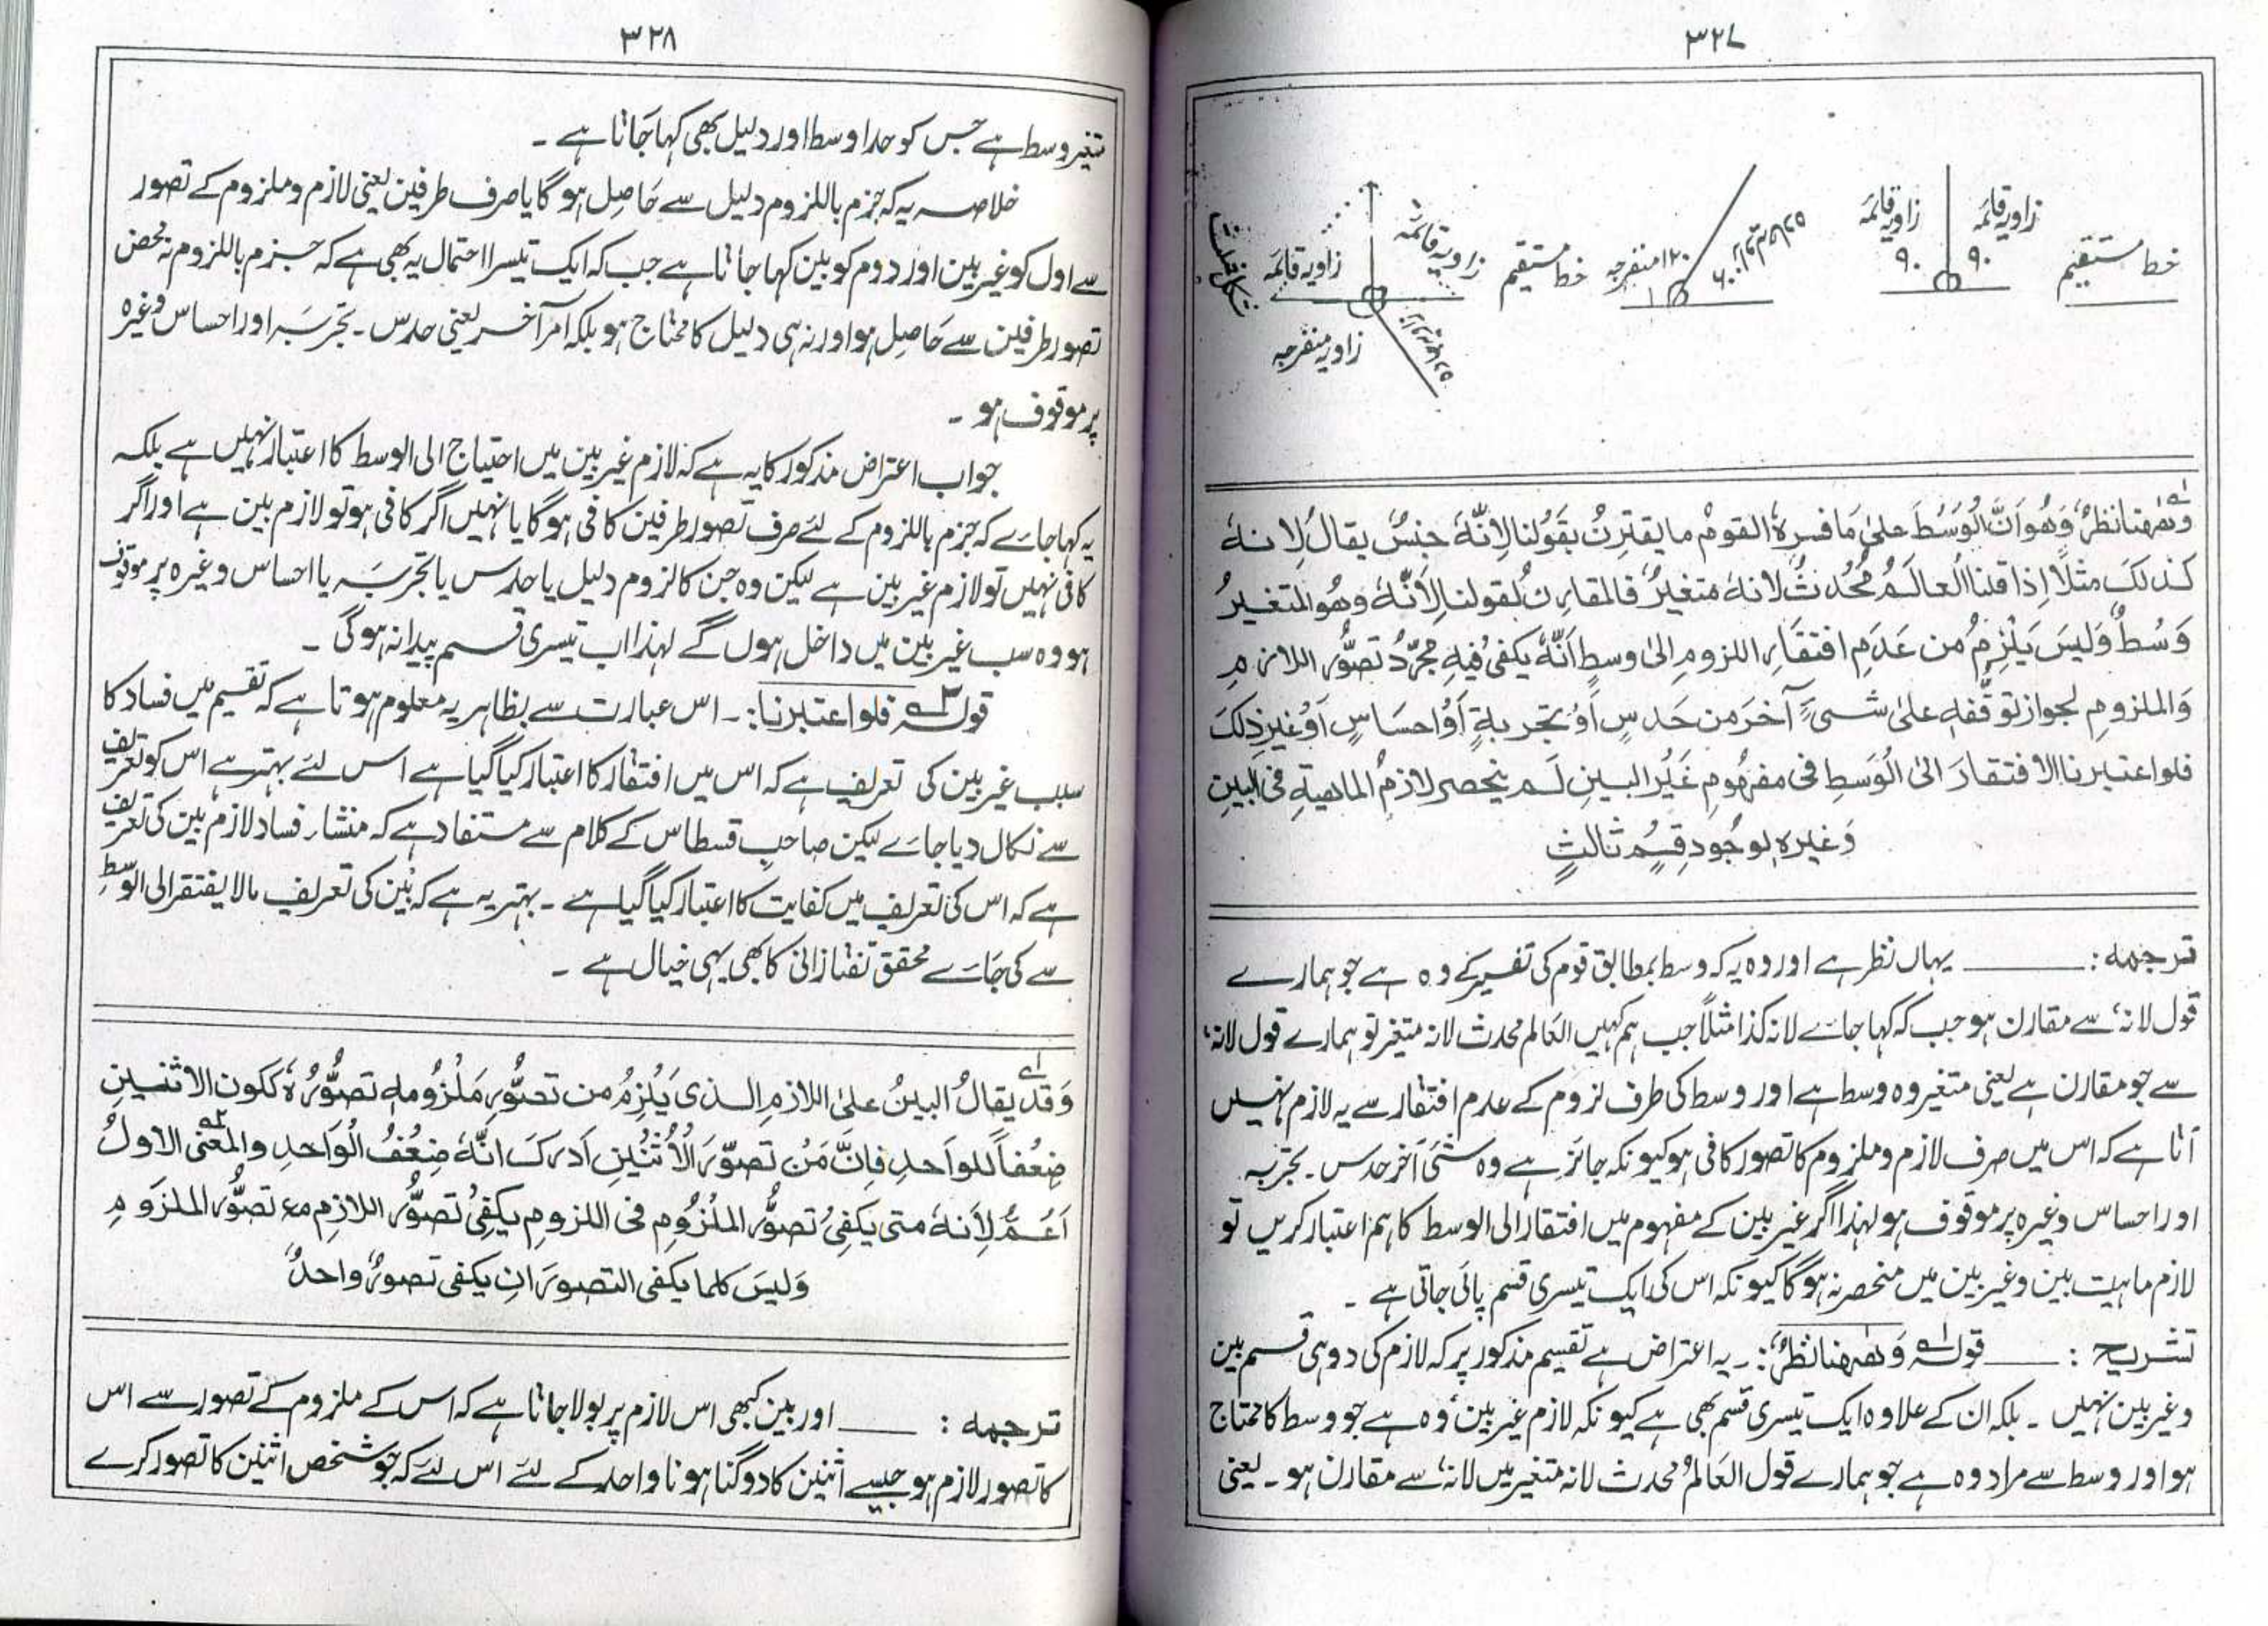 ۳۲۷
خط مستقیم
زاویہ قائمہ
۹۰
زاویہ قائمہ
۹۰
۱۲۰ منفرجہ
خط مستقیم
زاویہ قائمہ
زاویہ قائمہ
زاویہ منفرجہ
شکل مثلث
وَھٰھنا نظرٌ وَھُو اَنَّ الْوَسَطَ علیٰ مَا فسرہٗ القومُ ما یقترِنُ بقَوُلنا لِاَنَّہٗ حِیْنَ یقالُ لِانہٗ
کذلکَ مثلًا اِذا قلنا العالَمُ مُحْدثٌ لانہٗ متغیرٌ فالمقارِنُ لقولنا لِاَنَّہٗ وھُو المتغیرُ
وَسْطٌ وَلیسَ یَلْزِمُ من عَدَمِ افتقارِ اللزومِ الیٰ وسطٍ اَنَّہٗ یکفی فیہِ مجرّدُ تصوُّرِ اللازمِ
وَالملزومِ لجوازِ توقفہٖ علیٰ شیءٍ آخرَ من حَدسٍ اَوْ تجربةٍ اَوْ احساسٍ اَوْ غیرِ ذلکَ
فلو اعتبرنا الافتقارَ الیٰ الْوَسَطِ فی مفھُومِ غَیْرِ البینِ لَم ینحصر لازمُ الماھیةِ فی البینِ
وَغیرہٖ لِوجُودِ قِسْمٍ ثالثٍ
ترجمہ: ــــــ یہاں نظر ہے اور وہ یہ کہ وسط بمطابق قوم کی تفسیر کے وہ ہے جو ہمارے
قول لانہ' سے مقارن ہو جب کہ کہا جائے لانہ کذا مثلاً جب ہم کہیں العَالم محدث لانہ متغیر تو ہمارے قول لانہ'
سے جو مقارن ہے یعنی متغیر وہ وسط ہے اور وسط کی طرف لزوم کے عدم افتقار سے یہ لازم نہیں
آتا ہے کہ اس میں صرف لازم وملزوم کا تصور کافی ہو کیونکہ جائز ہے وہ شئی آخر حدس ۔ تجربہ
اور احساس وغیرہ پر موقوف ہو لہٰذا اگر غیر بین کے مفہوم میں افتقار الی الوسط کا ہم اعتبار کریں تو
لازم ماہیت بین وغیر بین میں منحصر نہ ہوگا کیونکہ اس کی ایک تیسری قسم پائی جاتی ہے ۔
تشریح : ــــــ قولہ وَھٰھنا نظرٌ:۔ یہ اعتراض ہے تقسیم مذکور پر کہ لازم کی دو ہی قسم بین
وغیر بین نہیں ۔ بلکہ ان کے علاوہ ایک تیسری قسم بھی ہے کیونکہ لازم غیر بین' وہ ہے جو وسط کا محتاج
ہو اور وسط سے مراد وہ ہے جو ہمارے قول العَالم محدث لانہ متغیر میں لانہ' سے مقارن ہو ۔ یعنی
۳۲۸
متغیر وسط ہے جس کو حد اوسط اور دلیل بھی کہا جَاتا ہے ۔
خلاصہ یہ کہ جزم باللزوم دلیل سے حَاصِل ہوگا یا صرف طرفین یعنی لازم وملزوم کے تصور
سے اول کو غیر بین اور دوم کو بین کہا جَاتا ہے جب کہ ایک تیسرا احتمال یہ بھی ہے کہ جزم باللزوم نہ محض
تصور طرفین سے حَاصِل ہو اور نہ ہی دلیل کا محتاج ہو بلکہ اَمر آخر یعنی حدس ۔ تجربَہ اور احساس وغیرہ
پر موقوف ہو ۔
جواب اعتراض مذکور کا یہ ہے کہ لازم غیر بین میں احتیاج الی الوسط کا اعتبار نہیں ہے بلکہ
یہ کہا جائے کہ جزم باللزوم کے لئے صرف تصور طرفین کافی ہوگا یا نہیں اگر کافی ہو تو لازم بین ہے اور اگر
کافی نہیں تو لازم غیر بین ہے لیکن وہ جن کا لزوم دلیل یا حدس یا تجربَہ یا احساس وغیرہ پر موقوف
ہو وہ سب غیر بین میں داخل ہوں گے لہٰذا اب تیسری قسم پیدا نہ ہوگی ۔
قولہ فلو اعتبرنا:۔ اس عبارت سے بظاہر یہ معلوم ہوتا ہے کہ تقسیم میں فساد کا
سبب غیر بین کی تعریف ہے کہ اس میں افتقار کا اعتبار کیا گیا ہے اس لئے بہتر ہے اس کو تعریف
سے نکال دیا جائے لیکن صاحب قسطاس کے کلام سے مستفاد ہے کہ منشار فساد لازم بین کی تعریف
ہے کہ اس کی تعریف میں کفایت کا اعتبار کیا گیا ہے ۔ بہتر یہ ہے کہ بَین کی تعریف مالا یفتقر الی الوسط
سے کی جَائے محقق تفتازانی کا بھی یہی خیال ہے ۔
وَقد یقالُ البینُ علیٰ اللازمِ الذی یَلْزِمُ من تصوُّرِ مَلْزُومِہٖ تصوُّرُہٗ ککونِ الاثنینِ
ضِعْفًا للواحدِ فاِنَّ مَنْ تصوَّرَ الْاِثْنَیْنِ اَدرکَ انَّہٗ ضِعْفُ الْوَاحدِ والمعنٰی الاولُ
اَعَمُّ لِاَنہٗ متٰی یکفِی تصوُّرُ المَلْزُومِ فی اللزومِ یکفِی تصوُّرُ اللازِمِ مع تصوُّرِ الملزومِ
وَلیسَ کلما یکفی التصورَانِ یکفی تصورٌ واحدٌ
ترجمہ : ــــــ اور بین کبھی اس لازم پر بولا جاتا ہے کہ اس کے ملزوم کے تصور سے اس
کا تصور لازم ہو جیسے اثنین کا دوگنا ہونا واحد کے لئے اس لئے کہ جو شخص اثنین کا تصور کرے